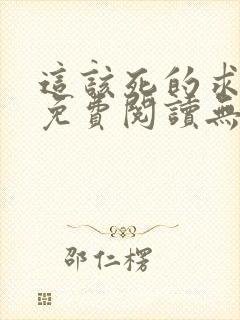 這該死的求
免費閱讀無
邵仁楞